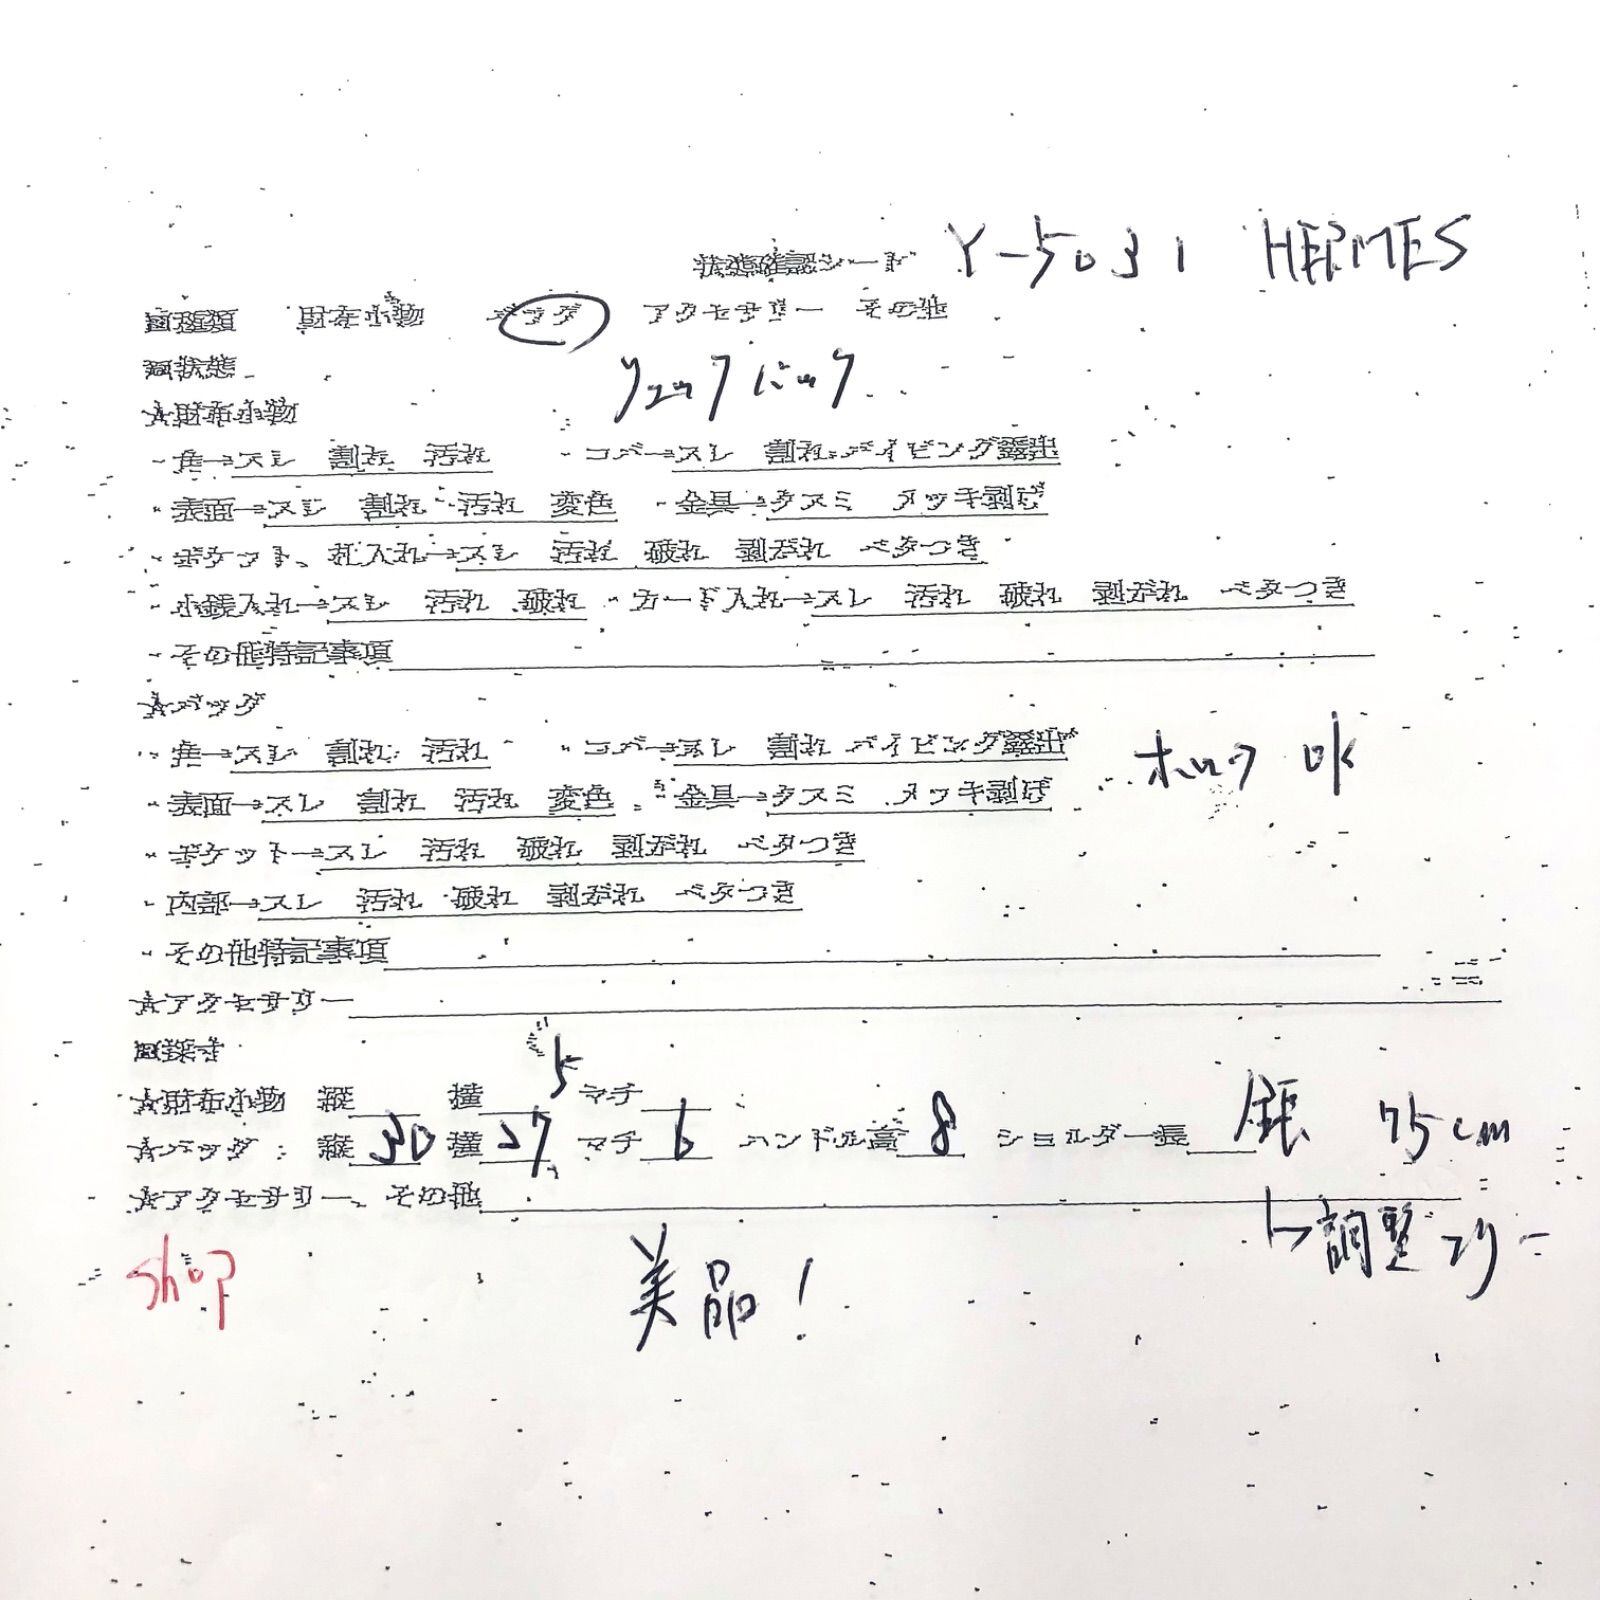 状態確認シート Y-5031 HERMES
■種類 財布小物 バッグ アクセサリー その他
■状態
リュックバック
★財布小物
・角→スレ 割れ 汚れ ・コバ→スレ 割れ パイピング露出
・表面→スレ 割れ 汚れ 変色 ・金具→クスミ メッキ剥げ
・ポケット、札入れ→スレ 汚れ 破れ 剥がれ ベタつき
・小銭入れ→スレ 汚れ 破れ ・カード入れ→スレ 汚れ 破れ 剥がれ ベタつき
・その他特記事項
★バッグ
・角→スレ 割れ 汚れ ・コバ→スレ 割れ パイピング露出
ホック OK
・表面→スレ 割れ 汚れ 変色 ・金具→クスミ メッキ剥げ
・ポケット→スレ 汚れ 破れ 剥がれ ベタつき
・内部→スレ 汚れ 破れ 剥がれ ベタつき
・その他特記事項
★アクセサリー
■採寸
5
★財布小物 縦 横 マチ
★バッグ: 縦 30 横 27 マチ 6 ハンドル高 8 ショルダー長 75cm
★アクセサリー、その他
調整
shop 美品!